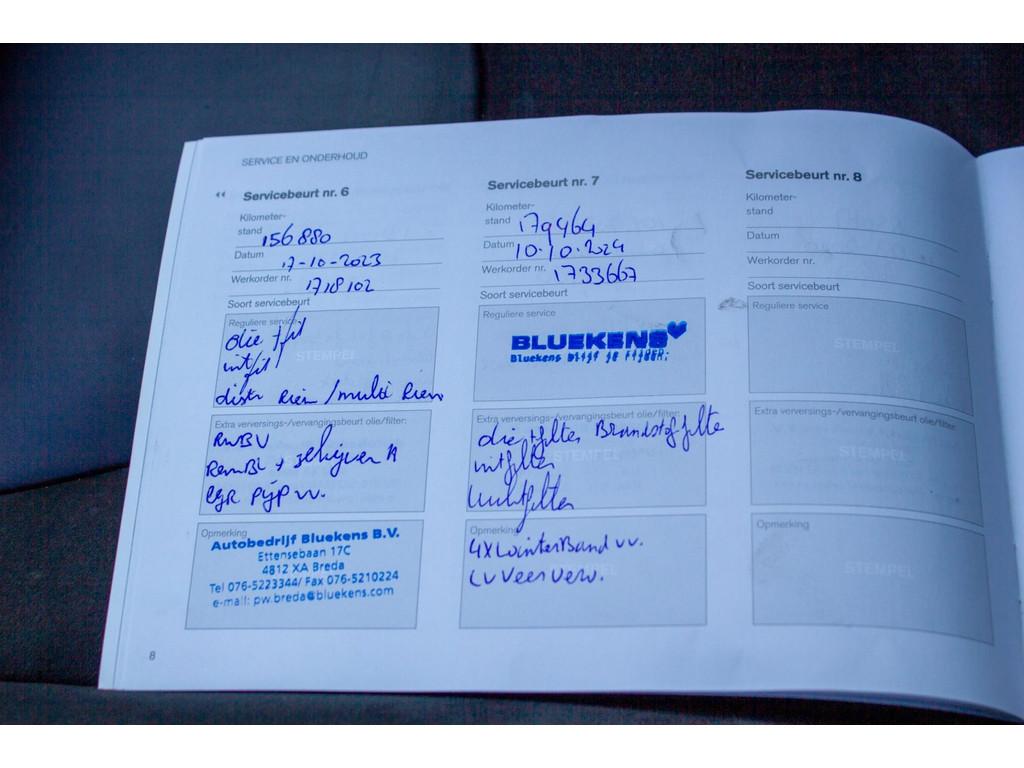 SERVICE EN ONDERHOUD
Servicebeurt nr. 6
Kilometer-
stand 156880
Datum 17-10-2023
Werkorder nr. 1718102
Soort servicebeurt
Reguliere service
olie + fil
intfil
distr Riem / multi Riem
STEMPEL
Extra verversings-/vervangingsbeurt olie/filter:
RWBV
RemBL + schijven A
EGR pijp vv.
Opmerking
Autobedrijf Bluekens B.V.
Ettensebaan 17C
4812 XA Breda
Tel 076-5223344/ Fax 076-5210224
e-mail: pw.breda@bluekens.com
8
Servicebeurt nr. 7
Kilometer-
stand 179464
Datum 10-10-2024
Werkorder nr. 1733667
Soort servicebeurt
Reguliere service
BLUEKENS
Bluekens blijf je rijden.
Extra verversings-/vervangingsbeurt olie/filter:
olie + filter Brandstoffilter
intfilter
luchtfilter
STEMPEL
Opmerking
4x WinterBand vv.
LV Veer verv.
Servicebeurt nr. 8
Kilometer-
stand
Datum
Werkorder nr.
Soort servicebeurt
Reguliere service
STEMPEL
Extra verversings-/vervangingsbeurt olie/filter:
STEMPEL
Opmerking
STEMPEL